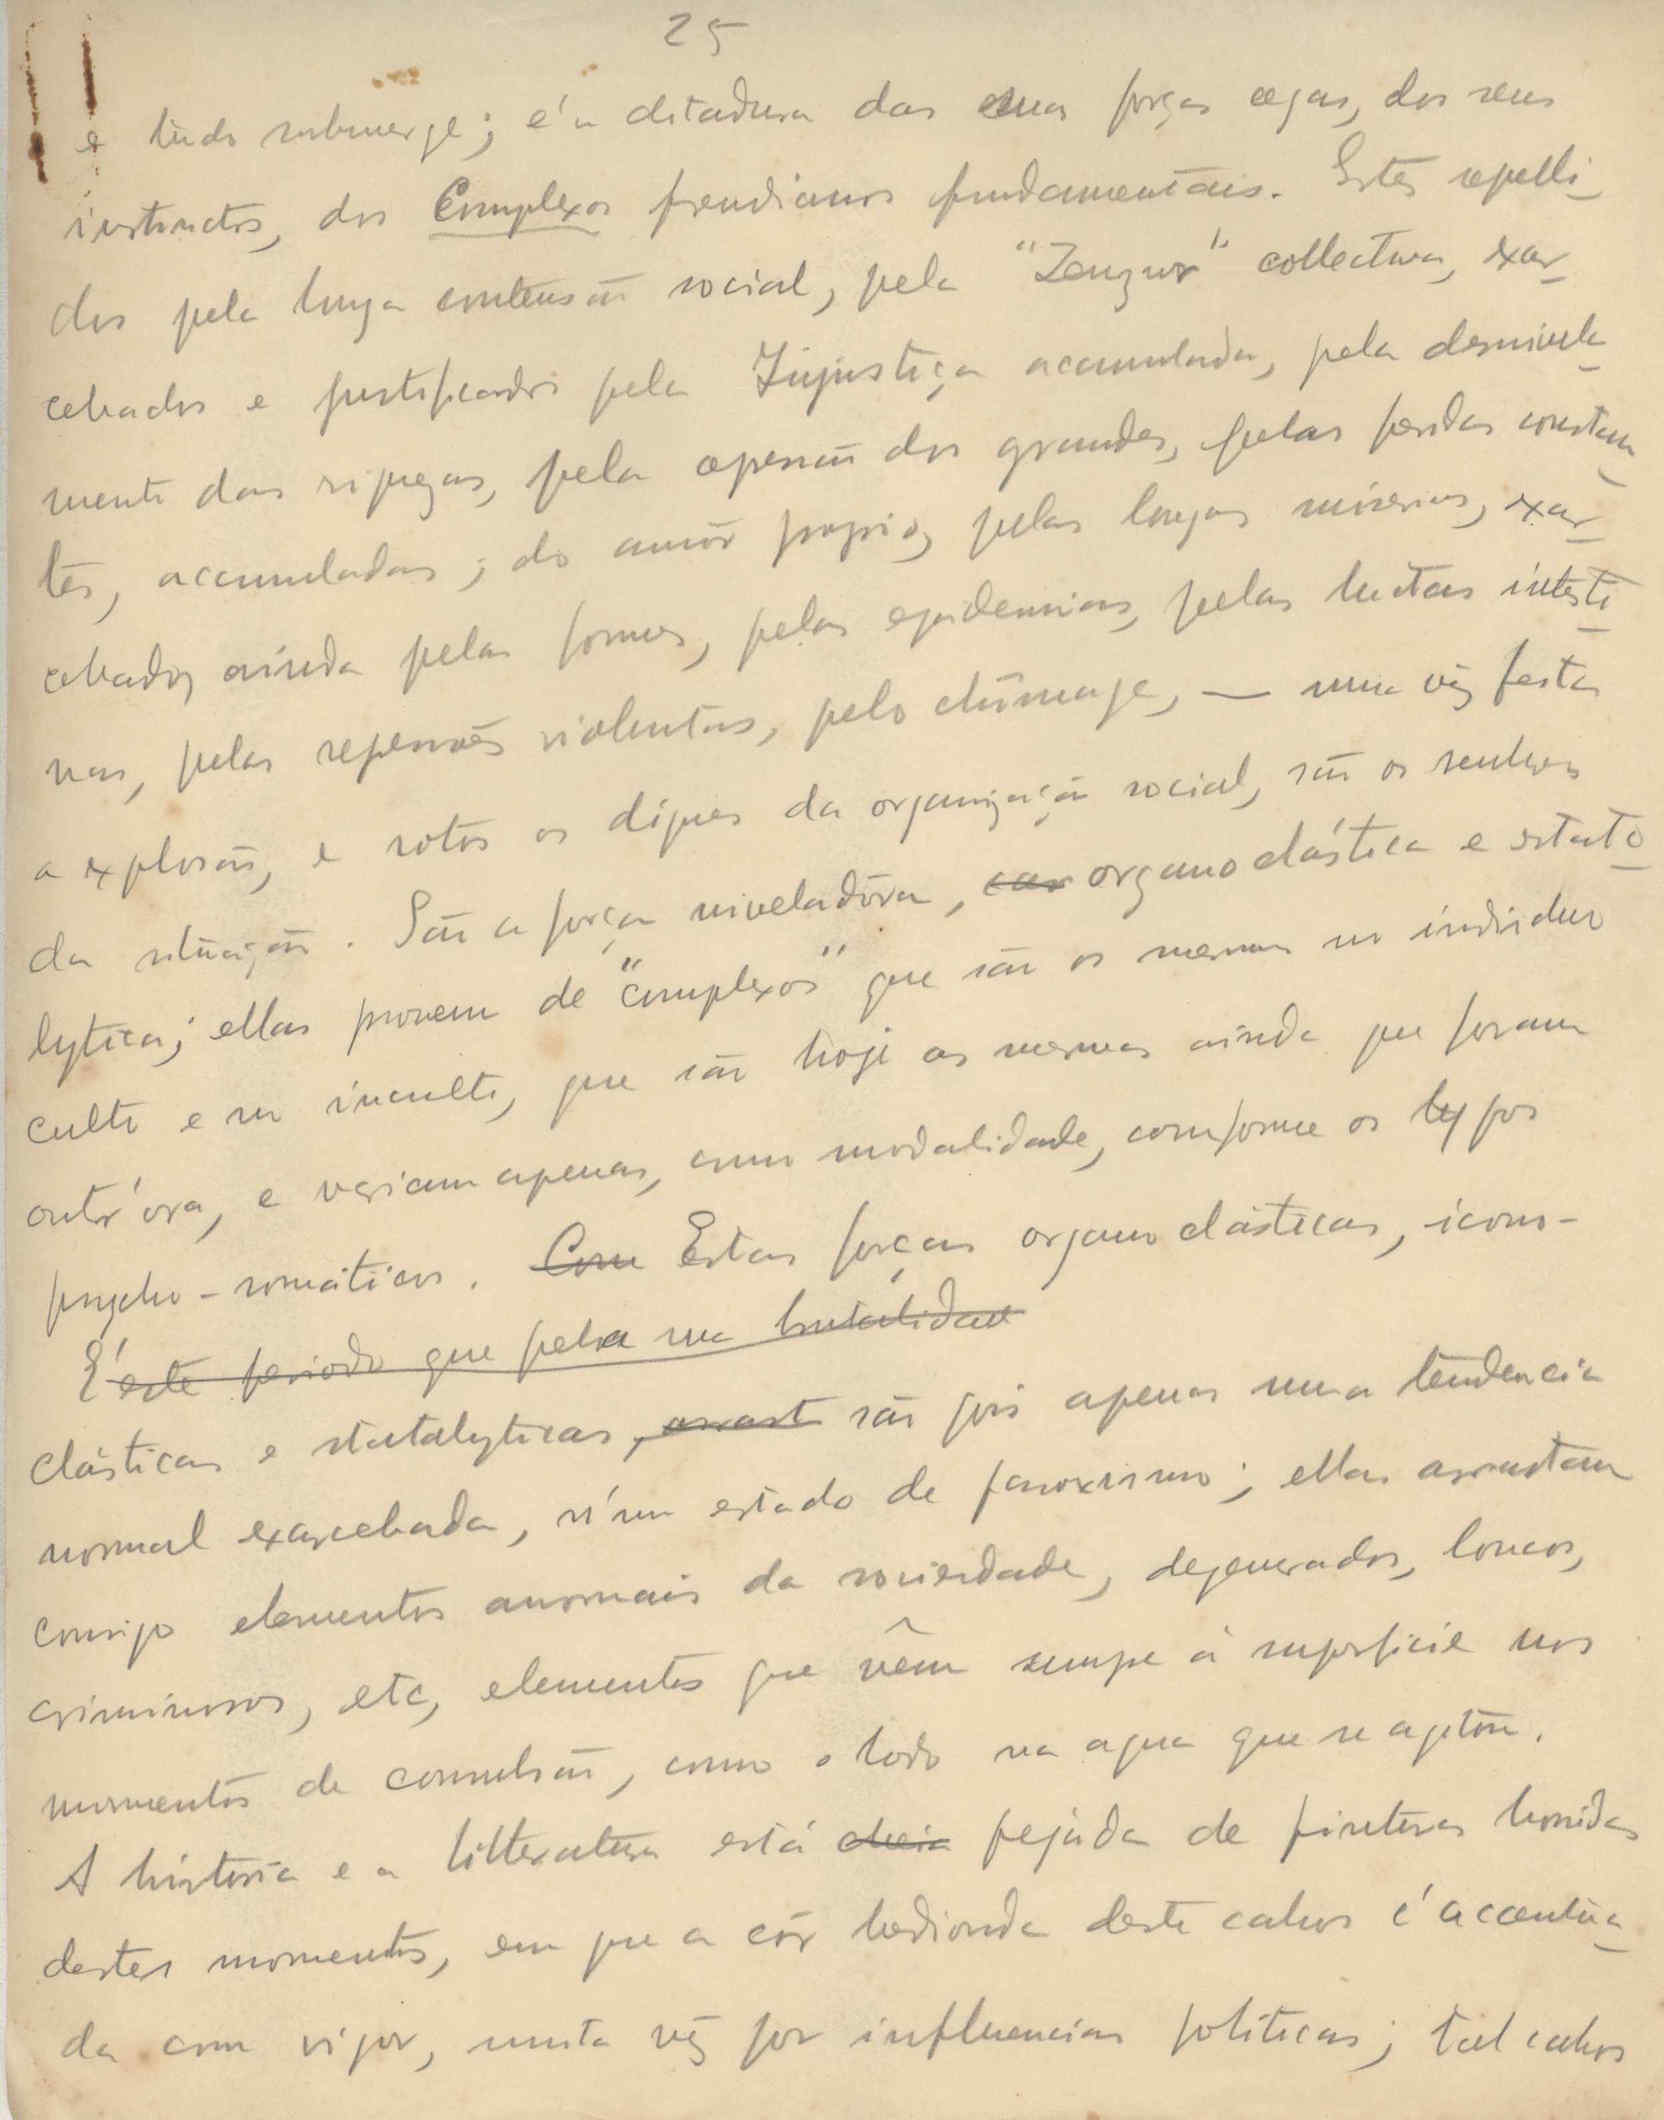 25
e tudo submerge; é a ditadura das suas forças cegas, dos seus
instinctos, dos Complexos freudianos fundamentais. Estes repelli-
dos pela longa contensão social, pela "Zenzur" collectiva, exar-
cebados e justificados pela Injustiça acumulada, pela desnivela-
mente das riquezas, pela opressão dos grandes, pelas feridas constan-
tes, accumuladas, do amôr proprio, pelas longas miserias, exar-
cebados ainda pelas fomes, pelas epidemias, pelas luctas intesti-
nas, pelas repressões violentas, pelo chûmage, — uma vez feita
a explosão, e rotos os diques da organização social, são os senhores
da situação. São a força niveladôra, organoclástica e estato-
lytica; ellas provem de "complexos" que são os mesmos no individuo
culto e no inculto, que são hoje os mesmos ainda que foram
outr'ora, e variam apenas, como modalidade, conforme os typos
psycho-somáticos. Com Estas forças organoclásticas, icono-
É este periodo que pela sua brutalidade
clásticas e statolyticas, são pois apenas uma tendencia
normal exarcebada, n'um estado de paroxismo; ellas arrastam
comsigo elementos anormais da sociedade, degenerados, loucos,
criminosos, etc, elementos que vêm sempre á superficie nos
momentos de convulsão, como o lodo na agua que se agitou.
A história e a litteratura está cheia pejáda de pinturas horridas
destes momentos, em que a côr hedionda deste cahos é accentua-
da com vigor, muita vez por influencias politicas; tal cahos